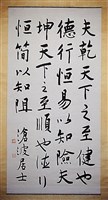 夫乾天下之至健也
德行恒易以知險夫
坤天下之至順也德行
恒簡以知阻
滄浪居士